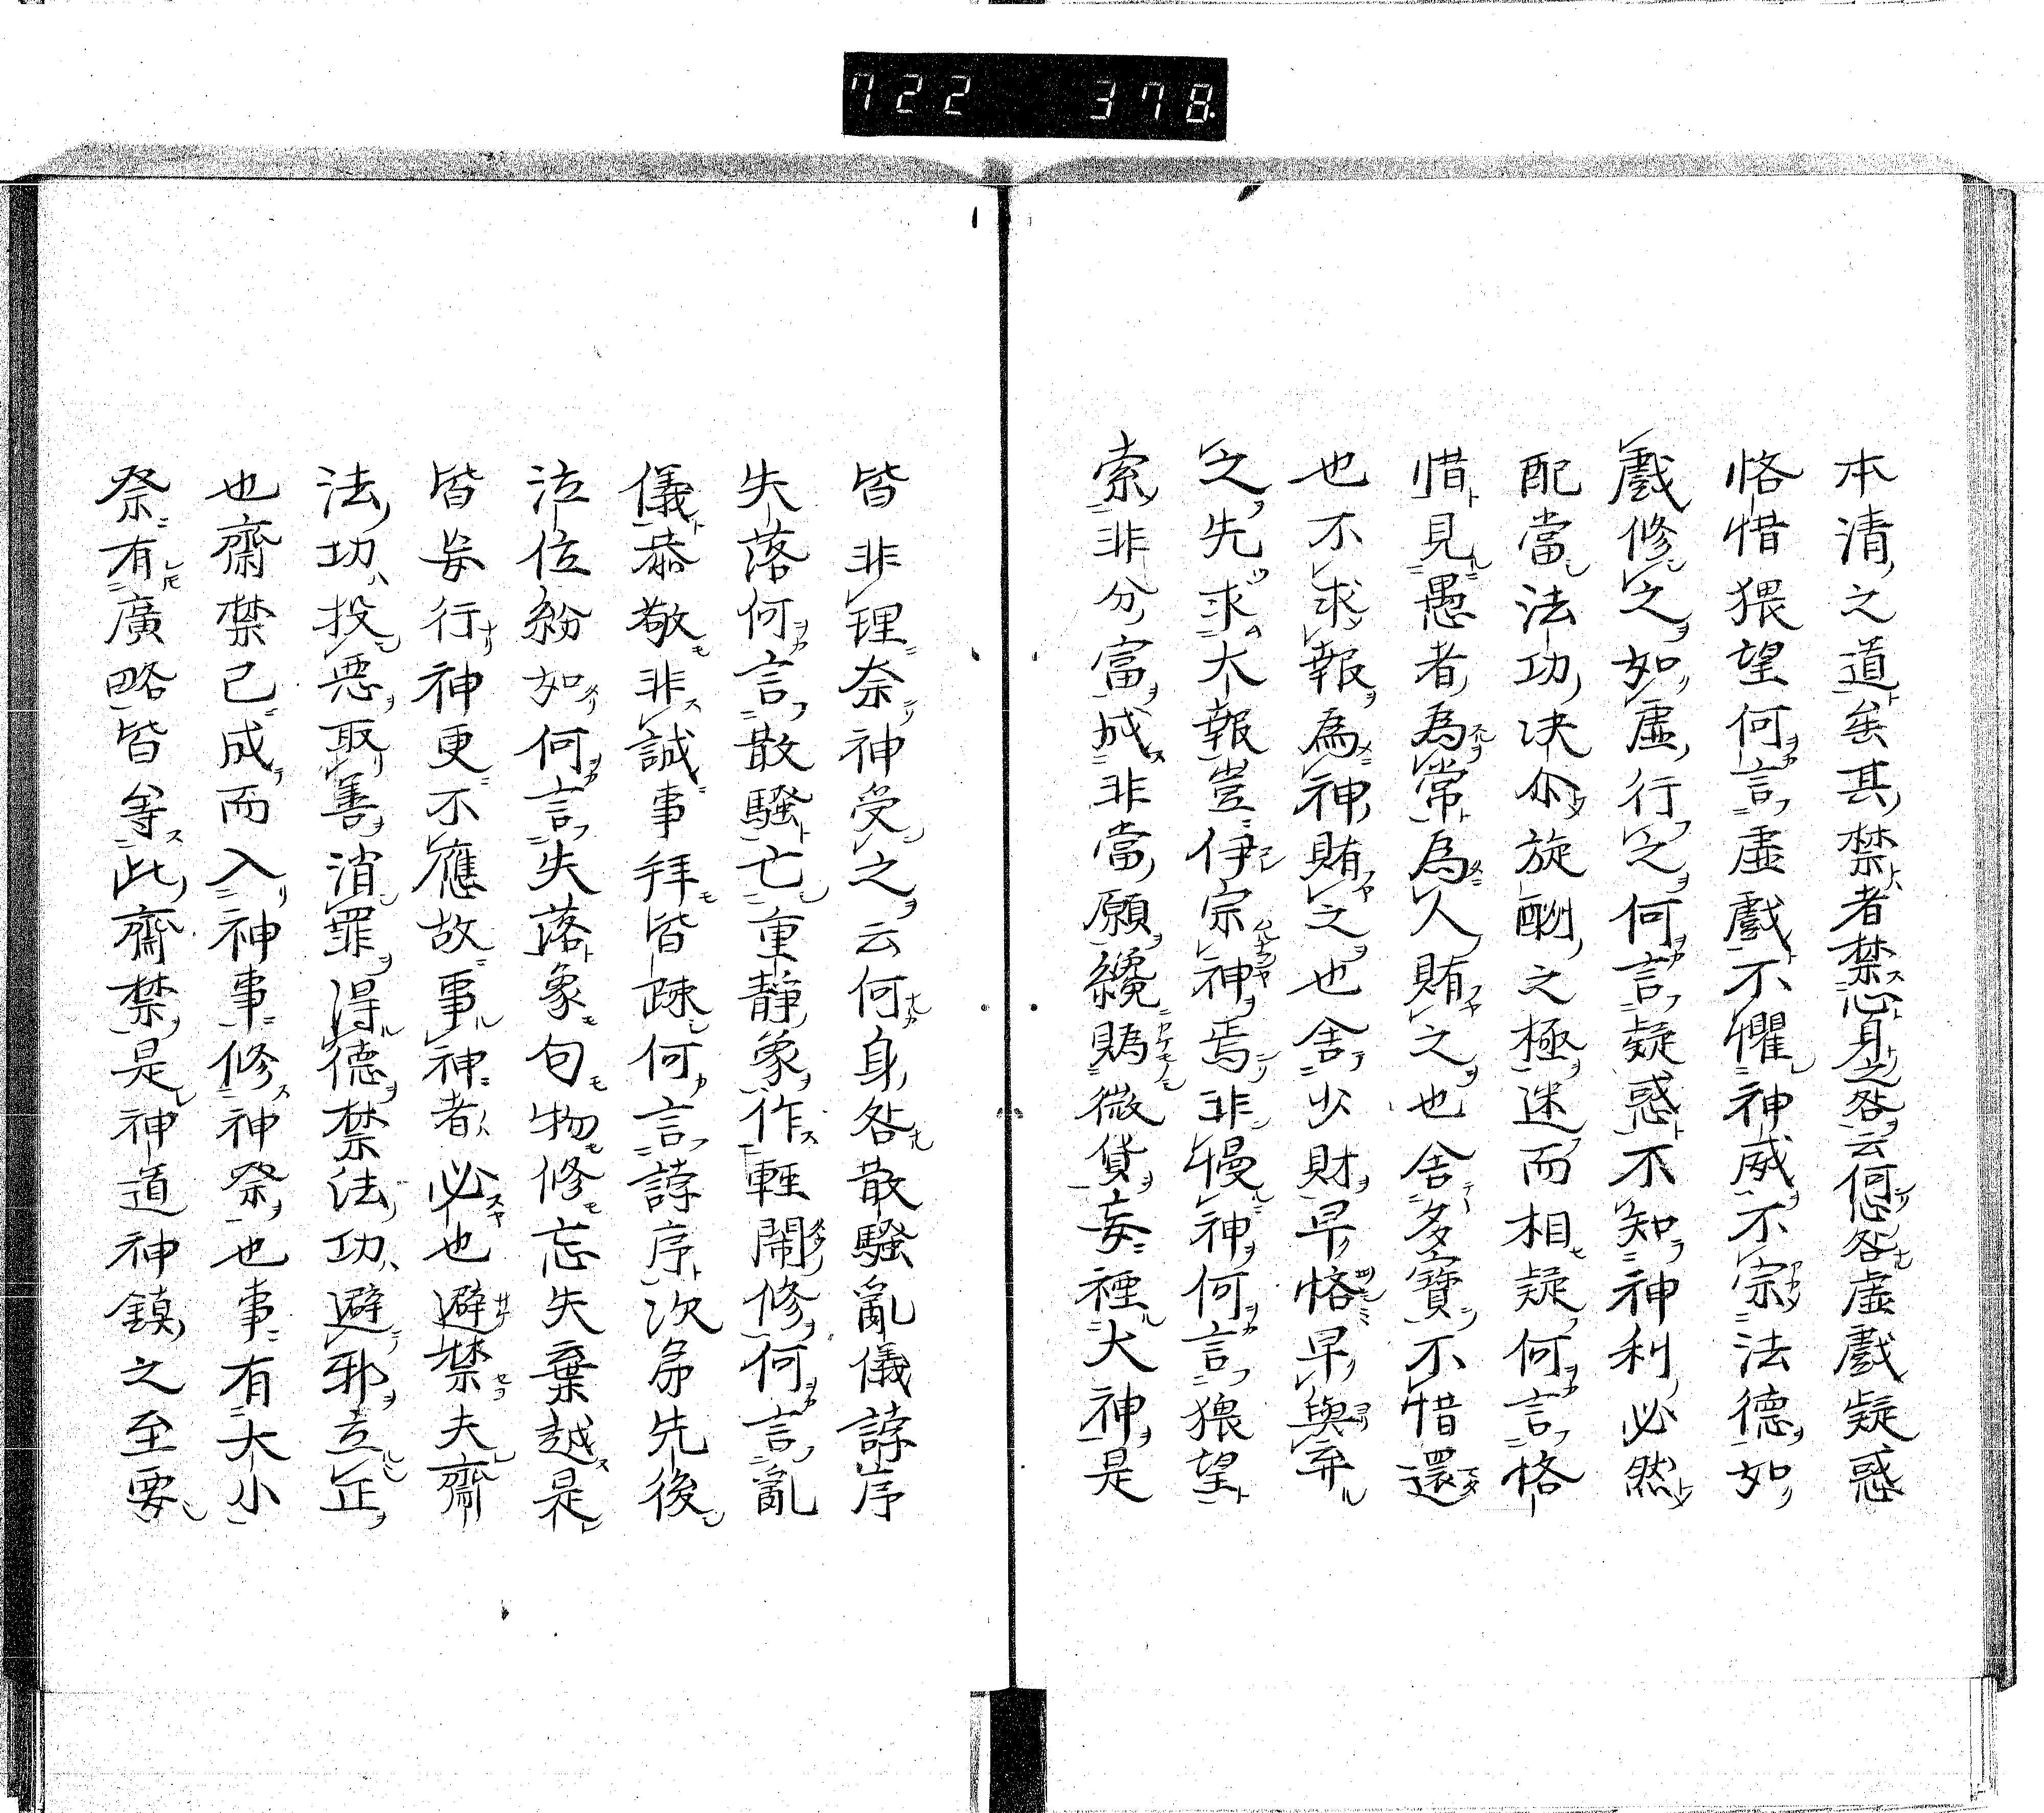 722 378.
本清之道矣其禁者禁心身之咎云何心咎虛戲疑惑
悋惜猥望何言虛戲不懼神威不宗法德如
戲修之如虛行之何言疑惑不知神利必然
配當法功决尒旋酬之極迷而相疑何言悋
惜見愚者為常為人賄之也舍多寶不惜還
也不求報為神賄之也舍少財早悋早與弃
之先求大報豈伊宗神焉非慢神何言猥望
索非分富成非當願纔賜微貨妄禋大神是
皆非理奈神受之云何身咎散騷亂儀誖序
失落何言散騷亡重靜象作輕鬧修何言亂
儀恭敬非誠事拜皆踈何言誖序次㐧先後
泣位紛如何言失落象句物修忘失棄越是
皆矣行神更不應故事神者必也避禁夫齋
法功投惡取善消罪得德禁法功避邪立正
也齋禁已成而入神事修神祭也事有大小
祭有廣略皆等此齋禁是神道神鎮之至要